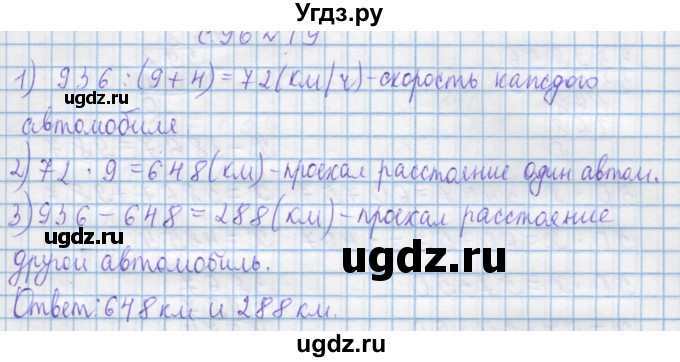 Угдз.ру
с 96 № 19
1) 936 : (9+4) = 72 (км/ч) - скорость каждого
ugdz.ru
автомобиля.
ugdz.ru
2) 72 · 9 = 648 (км) - проехал расстояние один автом.
3) 936 - 648 = 288 (км) - проехал расстояние
ugdz.ru
ugdz.ru
другой автомобиль.
ugdz.ru
Ответ: 648 км и 288 км.
ugdz.ru
Угдз.ру